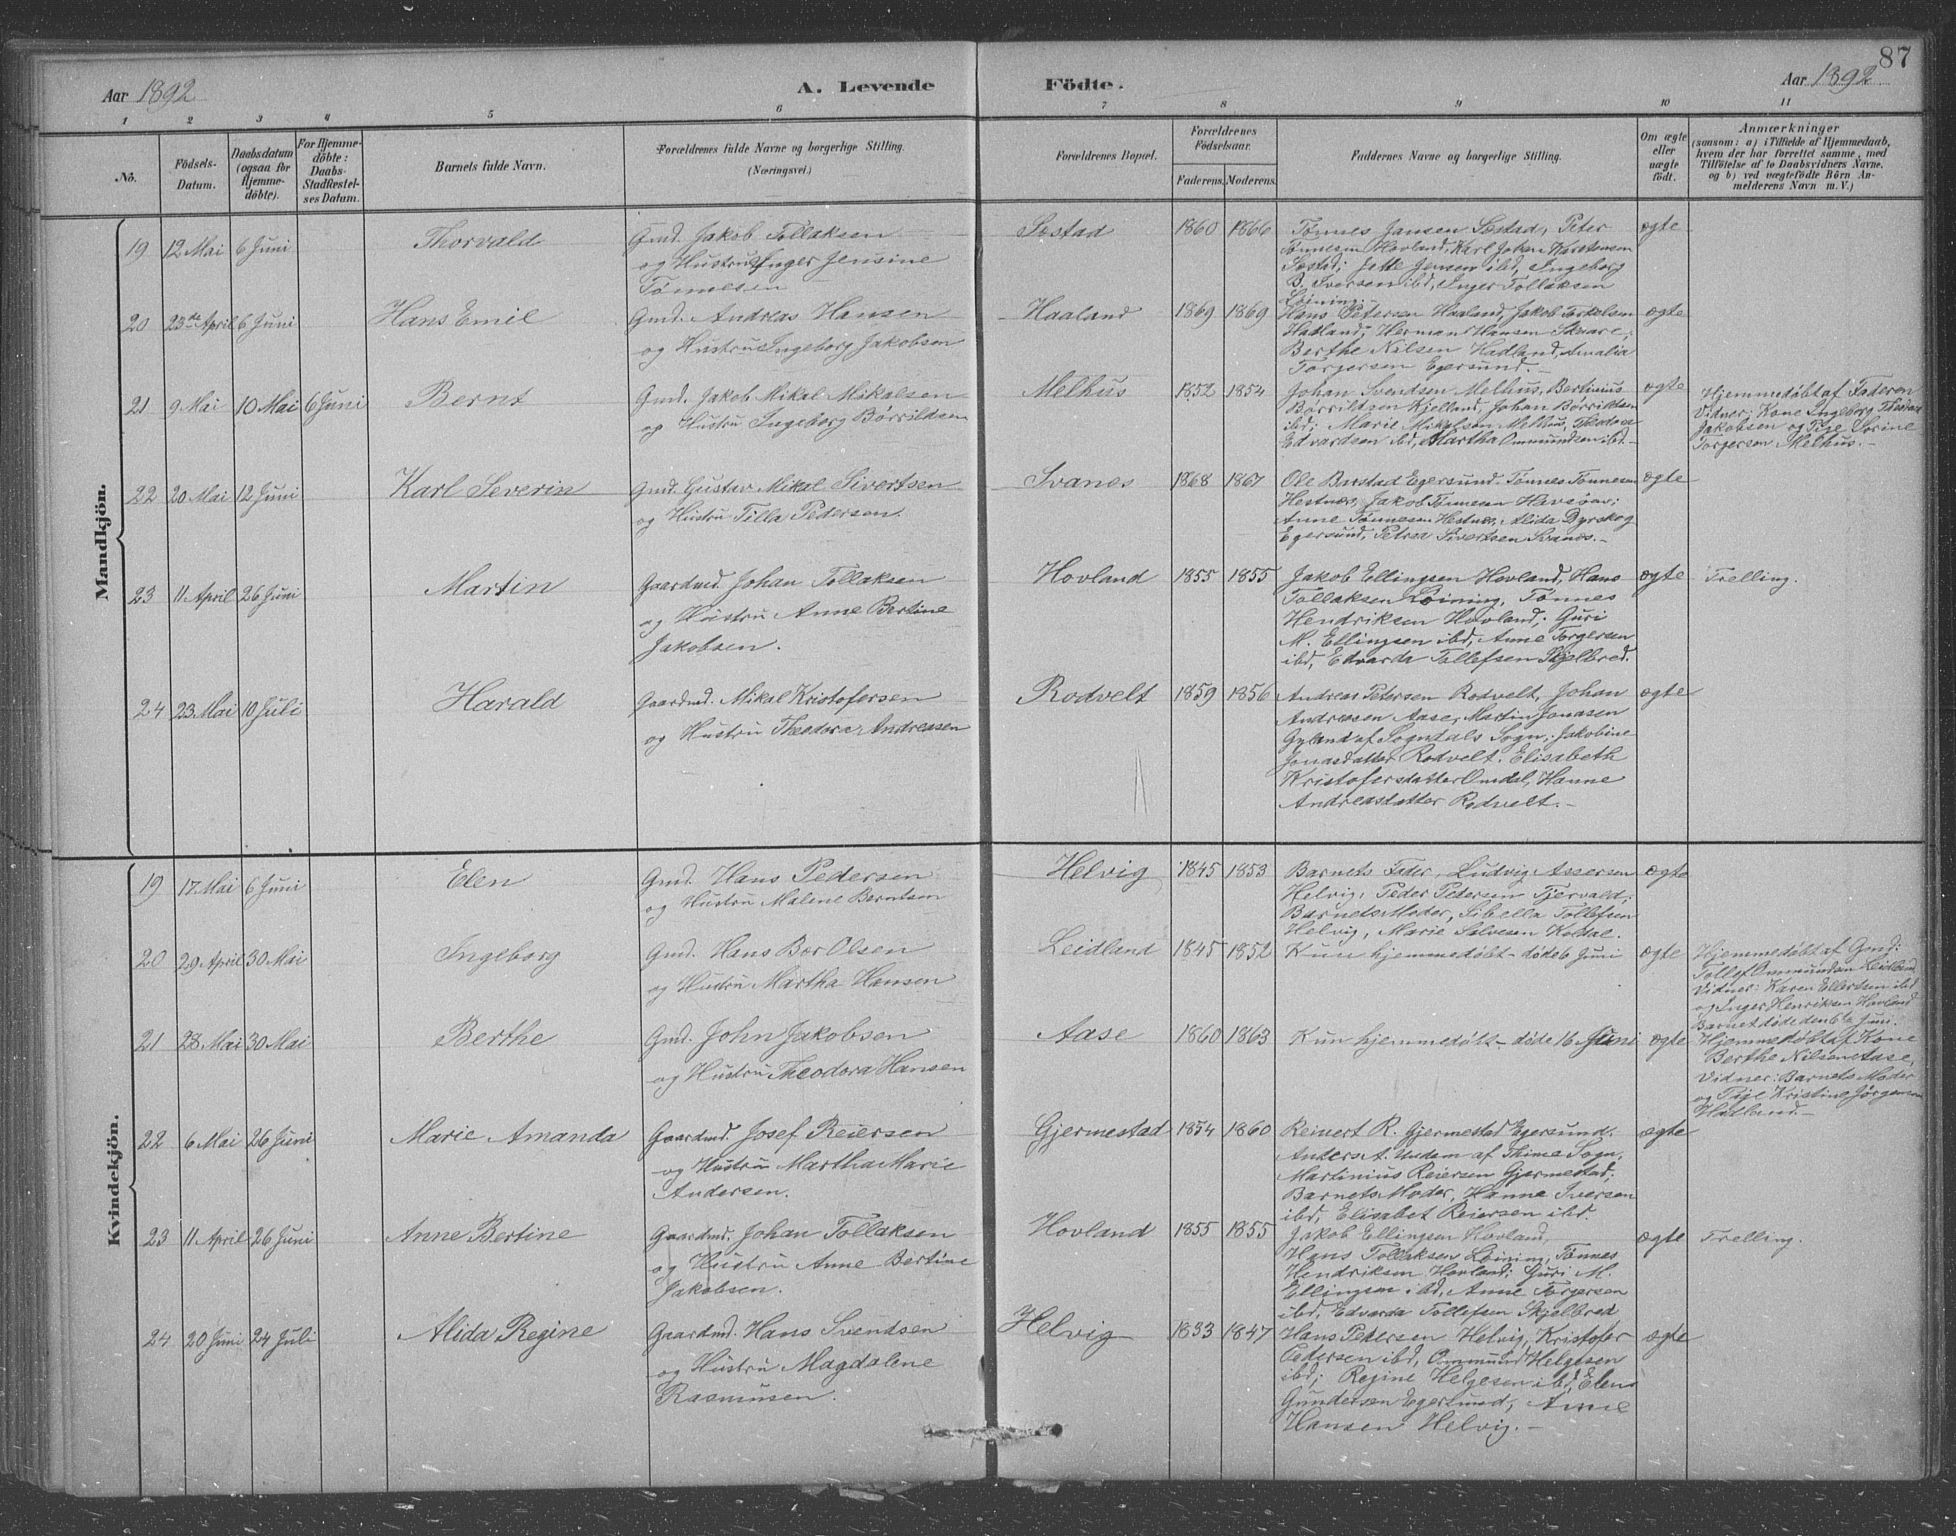 87
Aar 1892
A. Levende
Födte.
Aar 1892
1 2 3 4 5 6 7 8 9 10 11
No.
Födsels-
Datum.
Daabsdatum
(ogsaa for
Hjemme-
döbte).
For Hjemme-
döbte:
Daabs-
Stadfæstel-
ses Datum.
Barnets fulde Navn.
Forældrenes fulde Navne og borgerlige Stilling.
(Næringsvei.)
Forældrenes Bopæl.
Forældrenes
Födselsaar.
Faderens. Moderens.
Faddernes Navne og borgerlige Stilling.
Om ægte
eller
uægte
født.
Anmærkninger
(saasom: a) i Tilfælde af Hjemmedaab,
hvem der har forrettet samme, med
Tilföielse af to Daabsvidners Navne.
og b) ved uægtefödte Börn An-
melderens Navn m. V.)
Mandkjön.
19 12 Mai 6 Juni Thorvald
Gmd. Jakob Tollaksen
og Hustru Inger Jensine
Tønnesen
Søstad 1860 1866
Tønnes Jansen Søstad, Peter
Tønnesen Hovland, Karl Johan Karstensen
Søstad; Jette Jensen ibd, Ingeborg
B. Iversen ibd, Inger Tollaksen
Løining.-
ægte
20 23de April 6 Juni Hans Emil
Gmd. Andreas Hansen
og Hustru Ingeborg Jakobsen
Haaland 1869 1869
Hans Petersen Haaland, Jakob Torkelsen
Hadland, Herman Hansen Skaare;
Berthe Nilsen Hadland, Amalia
Torgersen Egersund.-
ægte
21 9 Mai 10 Mai 6 Juni Bernt
Gmd. Jakob Mikal Mikalsen
og Hustru Ingeborg Børrildsen
Melhus 1852 1854
Johan Svendsen Melhus, Bertinius
Børrildsen Kjelland, Johan Børrildsen
ibd; Marie Mikalsen Melhus, Theodora
Edvardsen ibd, Martha Ommundsen ibd.-
ægte
Hjemmedøbt af Faderen
Vidner: Kone Ingeborg Theodora
Jakobsen og Pige Serine
Torgersen Melhus.-
22 20 Mai 12 Juni Karl Severin
Gmd. Gustav Mikal Sivertsen
og Hustru Tilla Pedersen.
Svanes 1868 1867
Ole Barstad Egersund, Tønnes Tønnesen
Hestnes, Jakob Tønnesen Havsøav;
Anne Tønnesen Hestnes, Alida Dyrskog
Egersund, Petrea Sivertsen Svanes.-
ægte
23 11 April 26 Juni Martin
Gaardmd. Johan Tollaksen
og Hustru Anne Bertine
Jakobsen.
Hovland 1855 1855
Jakob Ellingsen Hovland, Hans
Tollaksen Løining, Tønnes
Hendriksen Hovland; Guri
M. Ellingsen ibd, Anne Torgersen
ibd, Edvarda Tollefsen Skjelbred.
ægte
Trelling.
24 23 Mai 10 Juli Harald
Gaardmd. Mikal Kristofersen
og Hustru Theodora Andreasen
Rodvelt 1859 1856
Andreas Petersen Rodvelt, Johan
Andreasen Aase, Martin Jonasen
Gyland af Sogndals Sogn; Jakobine
Jonasdatter Rodvelt, Elisabeth
Kristofersdatter Omdal, Hanne
Andreasdatter Rodvelt.-
ægte
Kvindekjön.
19 17 Mai 6 Juni Elen
Gmd. Hans Pedersen
og Hustru Malene Berntsen
Helvig 1845 1853
Barnets Fader, Ludvig Assersen
Helvig, Peder Petersen Tjervald;
Barnets Moder, Sibella Tollefsen
Helvig, Marie Salvesen Kodde.
ægte
20 29 April 30 Mai Ingeborg
Gmd. Hans Bor Olsen
og Hustru Martha Hansen
Leidland 1845 1852
Kun hjemmedøbt - døde 6 Juni
ægte
Hjemmedøbt af Gmd:
Tollef Ommundsen Leidland
Vidner: Karen Ellertsen ibd
og Inger Henriksen Hovland
Barnet døde den 6te Juni.
21 28 Mai 30 Mai Berthe
Gmd. John Jakobsen
og Hustru Theodora Hansen
Aase 1860 1863
Kun hjemmedøbt - døde 16 Juni
ægte
Hjemmedøbt af Kone
Berthe Nilsen Aase,
Vidner: Barnets Moder
og Pige Kristine Jørgensen
Hadland.-
22 6 Mai 26 Juni Marie Amanda
Gaardmd. Josef Reiersen
og Hustru Martha Marie
Andersen.
Gjermestad 1854 1860
Reinert R. Gjermestad Egersund,
Anders A. Undem af Thime Sogn,
Martinius Reiersen Gjermestad;
Barnets Moder, Hanne Iversen
ibd, Elisabet Reiersen ibd.
ægte
23 11 April 26 Juni Anne Bertine
Gaardmd. Johan Tollaksen
og Hustru Anne Bertine
Jakobsen.
Hovland 1855 1855
Jakob Ellingsen Hovland,
Hans Tollaksen Løining, Tønnes
Hendriksen Hovland; Guri M.
Ellingsen ibd, Anne Torgersen
ibd, Edvarda Tollefsen Skjelbred
ægte
Trelling.
24 20 Juni 24 Juli Alida Regine
Gaardmd. Hans Svendsen
og Hustru Magdalene
Rasmusen.
Helvig 1833 1847
Hans Petersen Helvig, Kristofer
Pedersen ibd, Ommund Helgesen
ibd; Regine Helgesen ibd, Elen
Gundersen Egersund, Anne
Hansen Helvig.-
ægte